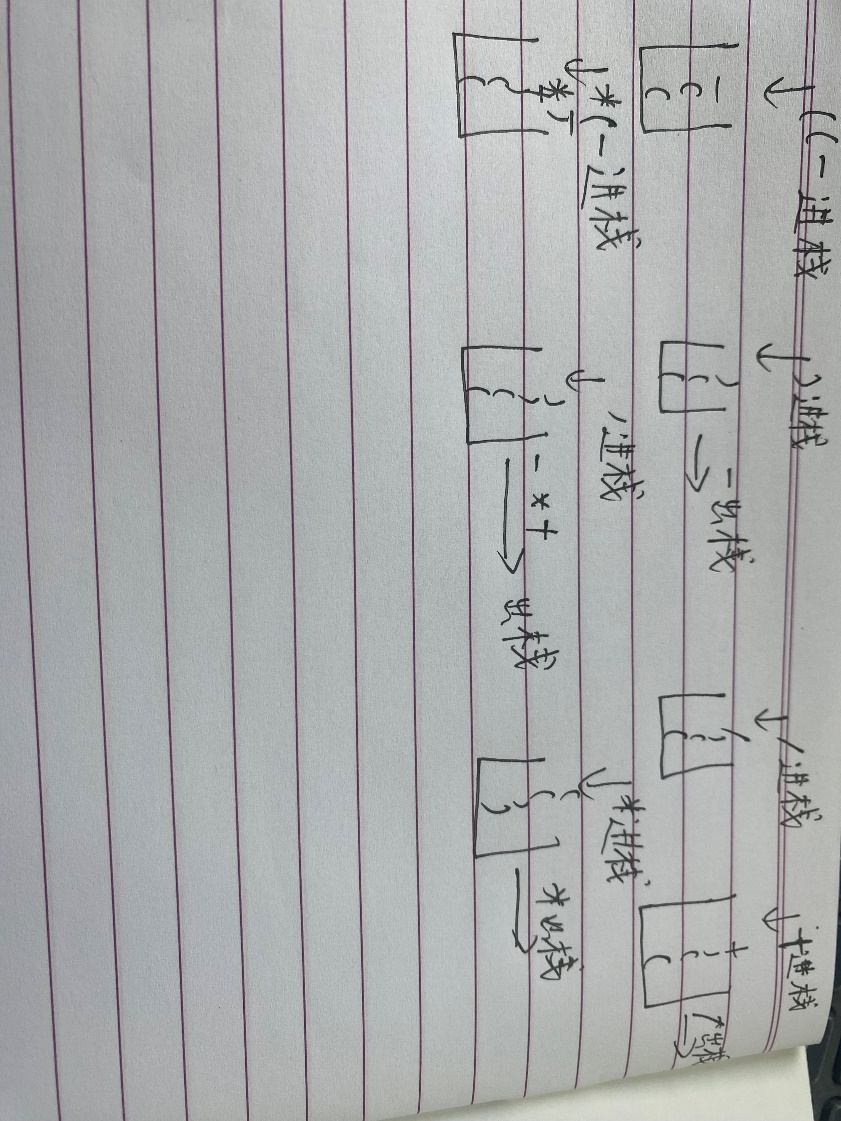 ((-进栈 )进栈 /进栈 +进栈
-出栈 /出栈
*(-进栈 )进栈 *进栈
-*+ 出栈 *出栈